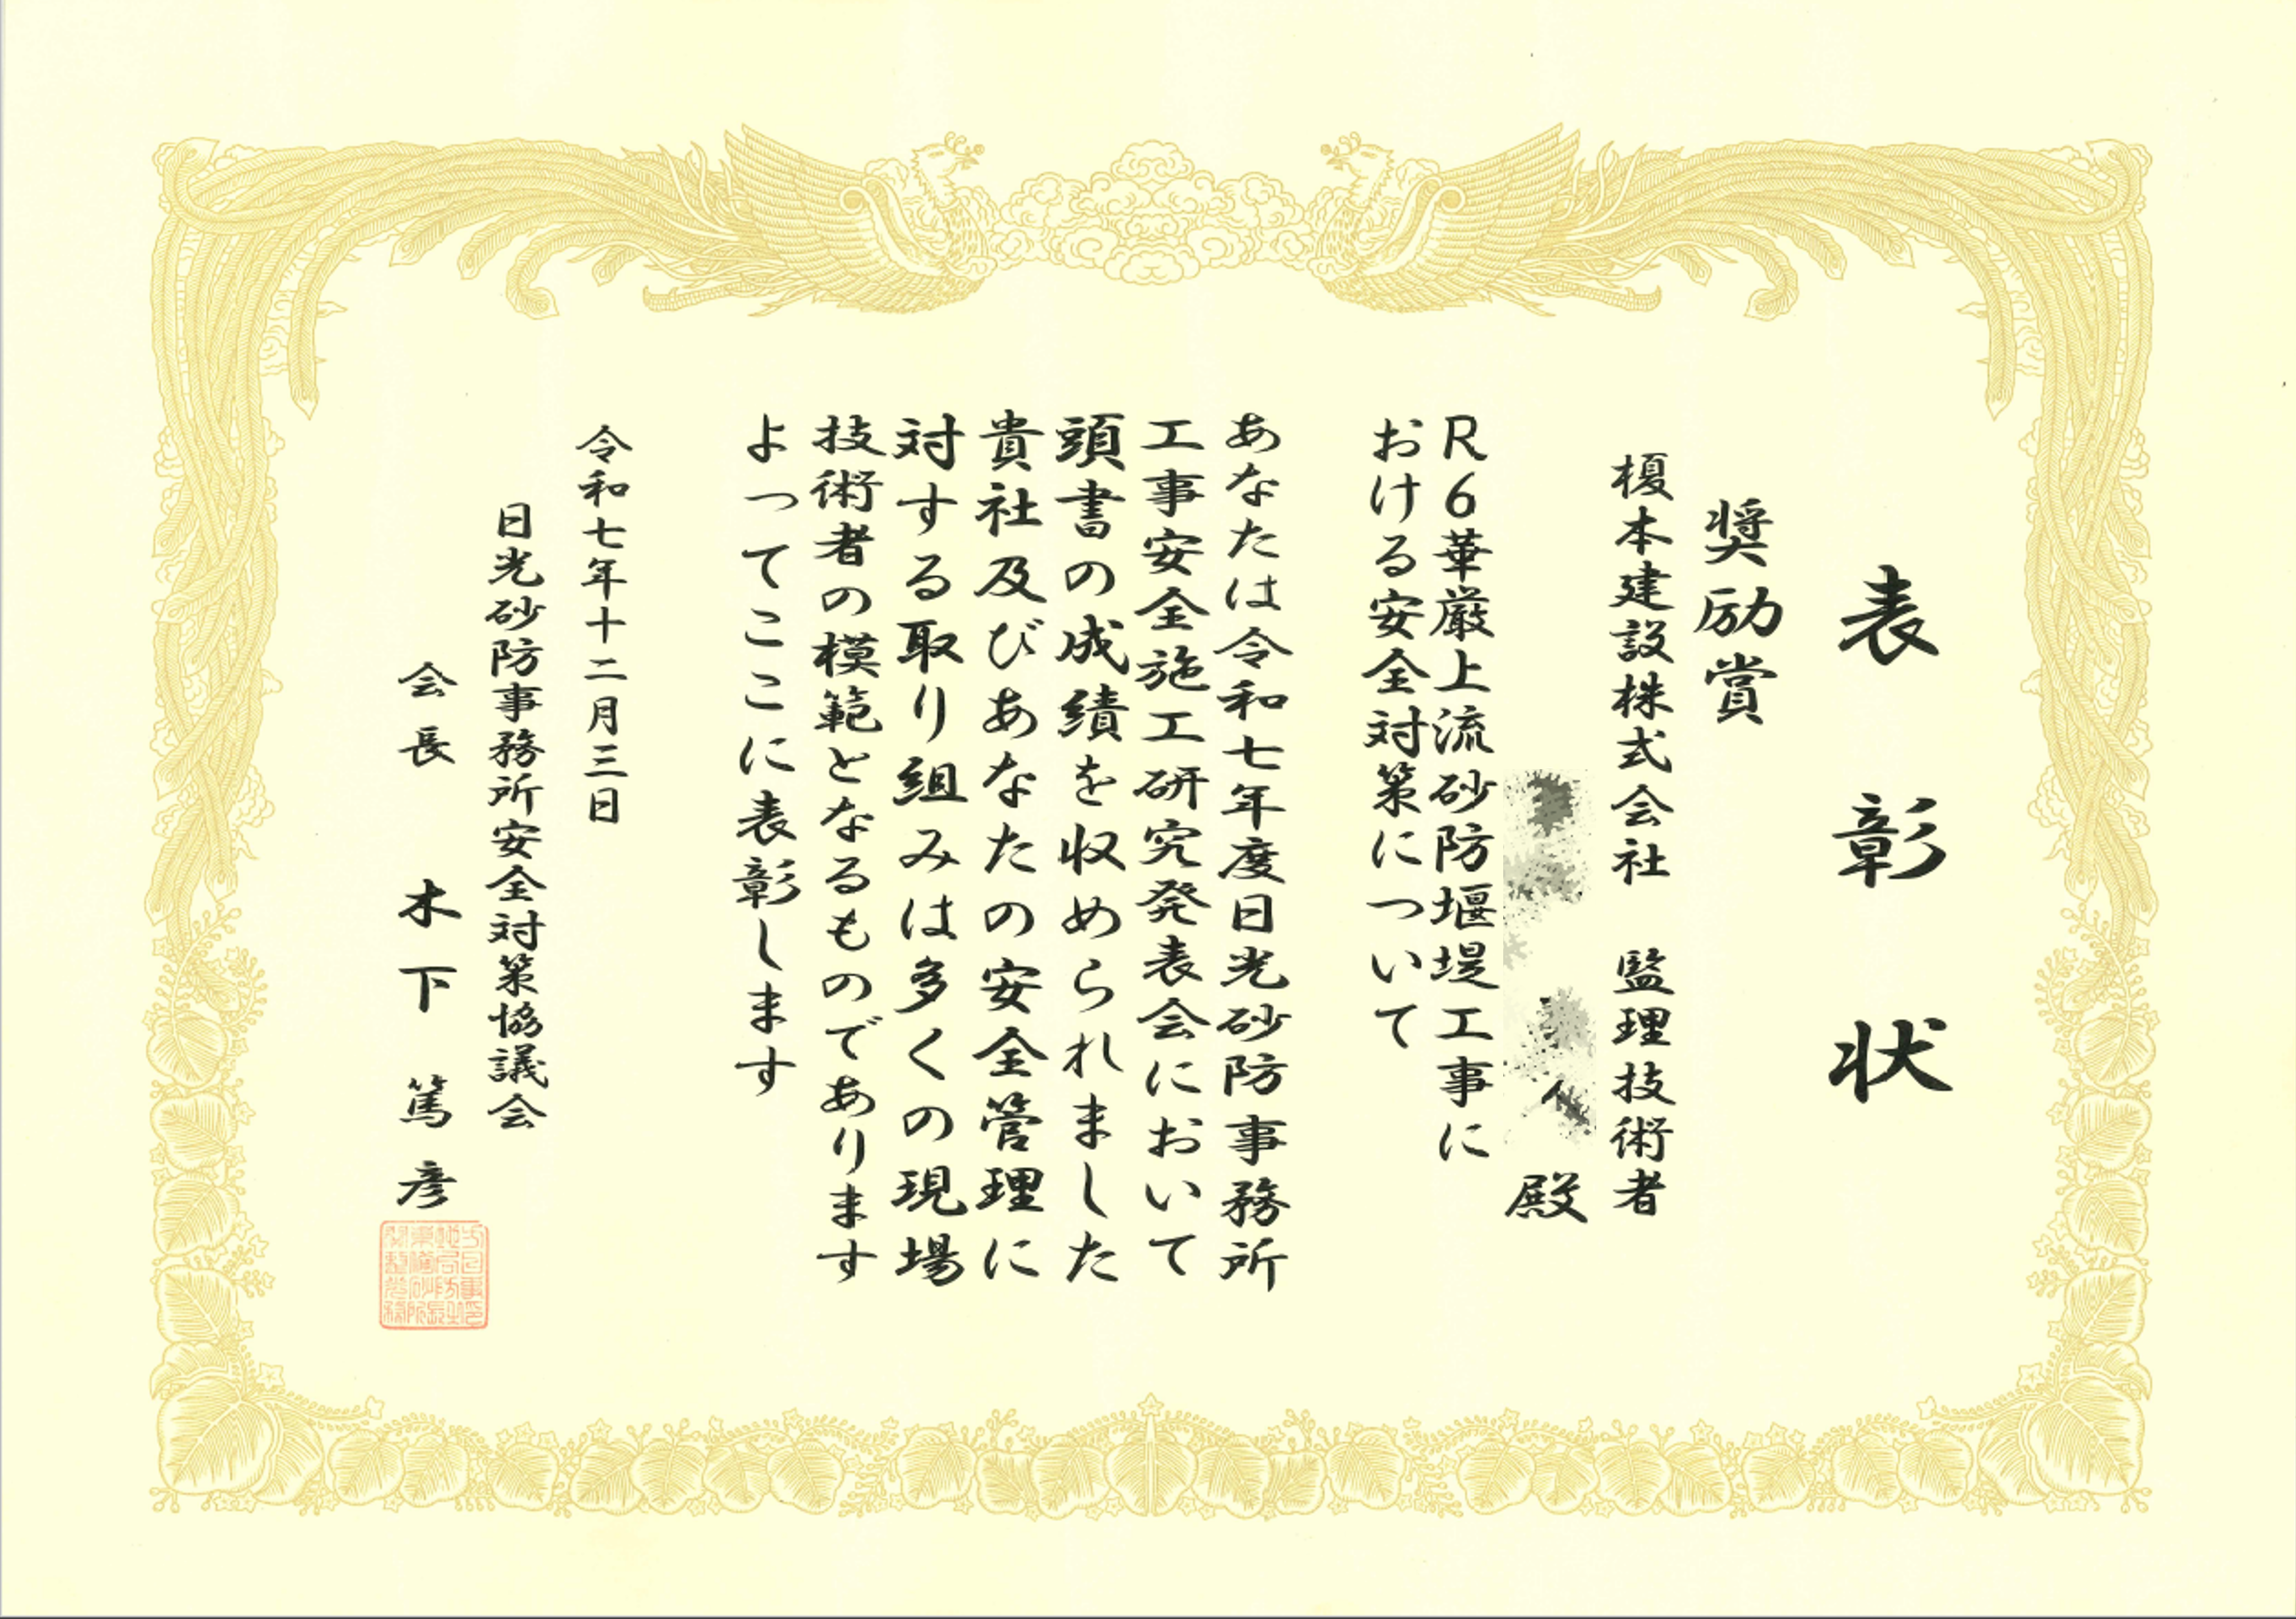 表彰状
奨励賞
榎本建設株式会社 監理技術者
殿
R6華厳上流砂防堰堤工事に
おける安全対策について
あなたは令和七年度日光砂防事務所
工事安全施工研究発表会において
頭書の成績を収められました
貴社及びあなたの安全管理に
対する取り組みは多くの現場
技術者の模範となるものであります
よってここに表彰します
令和七年十二月三日
日光砂防事務所安全対策協議会
会長 木下篤彦